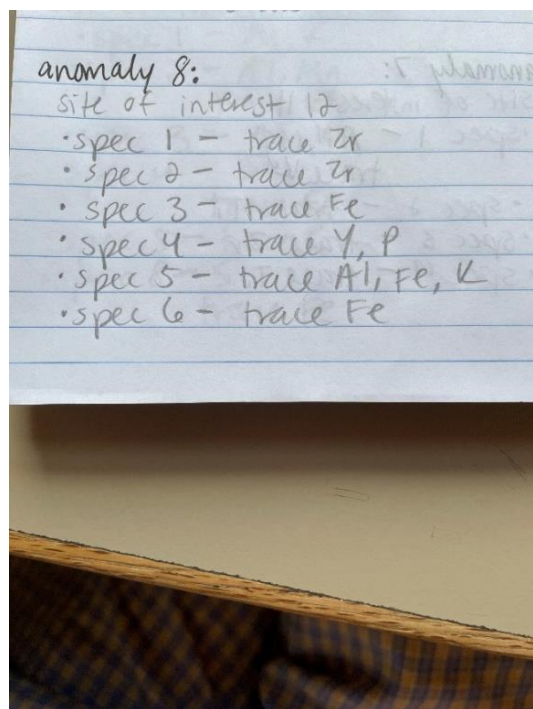 anomaly 8:
site of interest 12
• spec 1 - trace Zr
• spec 2 - trace Zr
• spec 3 - trace Fe
• spec 4 - trace Y, P
• spec 5 - trace Al, Fe, K
• spec 6 - trace Fe